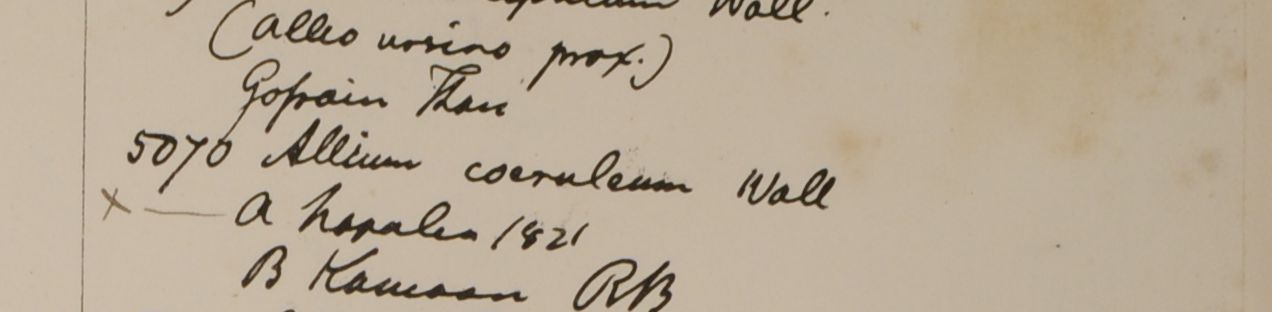 Wall.
(Allio ursino prox.)
Gosain Than
5070 Allium coeruleum Wall
x — a Napalia 1821
B Kamaon RB